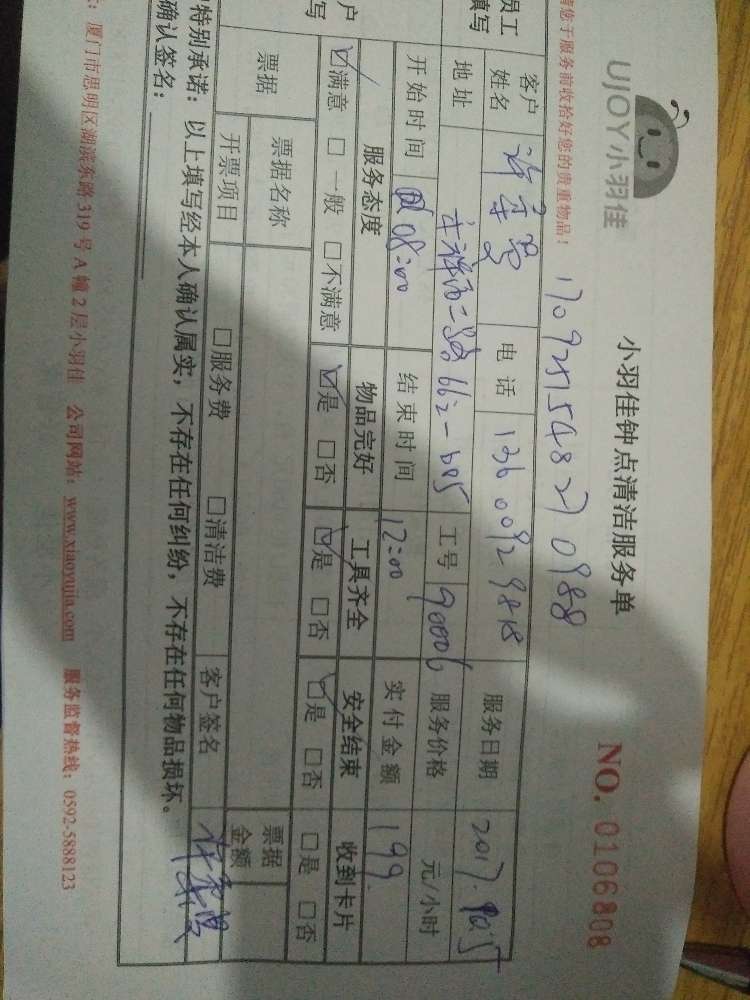 UJOY小羽佳
小羽佳钟点清洁服务单
NO. 0106808
请您于服务前收拾好您的贵重物品！
员工
填写
客户
姓名
电 话
服务日期
地址
662-605
工号
90006
服务价格
元/小时
开始时间
08:00
结束时间
12:00
实付金额
199
户
写
服务态度
物品完好
工具齐全
安全结束
收到卡片
☑满意 □一般 □不满意
☑是 □否
☑是 □否
☑是 □否
□是 □否
票据
票据名称
票据
金额
开票项目
□服务费 □清洁费
客户签名
特别承诺：以上填写经本人确认属实，不存在任何纠纷，不存在任何物品损坏。
确认签名：
：厦门市思明区湖滨东路319号A幢2层小羽佳 公司网站：www.xiaoyujia.com 服务监督热线：0592-5888123